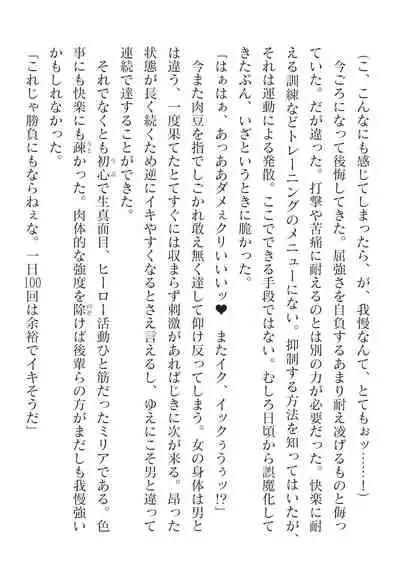 （こ、こんなにも感じてしまったら、が、我慢なんて、とてもぉッ……！）
　今ごろになって後悔してきた。屈強さを自負するあまり耐え凌げるものと侮っ
ていた。だが違った。打撃や苦痛に耐えるのとは別の力が必要だった。快楽に耐
える訓練などトレーニングのメニューにない。抑制する方法を知ってはいたが、
それは運動による発散。ここでできる手段ではない。むしろ日頃から誤魔化して
きたぶん、いざというときに脆かった。
「はぁはぁ、あっああダメぇクリいいいッ♥　またイク、イックぅうぅッ!?」
　今また肉豆を指でしごかれ敢え無く達して仰け反ってしまう。女の身体は男と
は違う、一度果てたとてすぐには収まらず刺激があればじきに次が来る。昂った
状態が長く続くため逆にイキやすくなるとさえ言えるし、ゆえにこそ男と違って
連続で達することができた。
　それでなくとも初心で生真面目、ヒーロー活動ひと筋だったミリアである。色
事にも快楽にも疎かった。肉体的な強度を除けば後輩らの方がまだしも我慢強い
かもしれなかった。
「これじゃ勝負にもならねぇな。一日100回は余裕でイキそうだ」